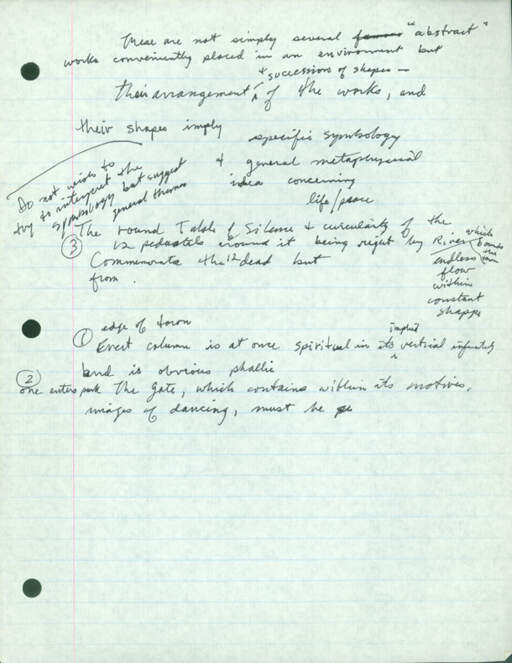 These are not simply several "abstract"
works conveniently placed in an environment but
+ succession of shapes —
their arrangement of the works, and
their shapes imply
specific symbology
+ general metaphysical
idea concerning
life/peace
Do not wish to
try to interpret the
symbology but suggest
general themes
③ The round Table of Silence + circularity of the
12 pedestals around it being right by River which
Commemorate the 12 dead but
from .
bounds the town
endless
flow
within
constant
shapes
edge of town
① Erect column is at once spiritual in its implied vertical infinitely
and is obvious phallic
② one enters park The Gate, which contains within its motives,
images of dancing, must be